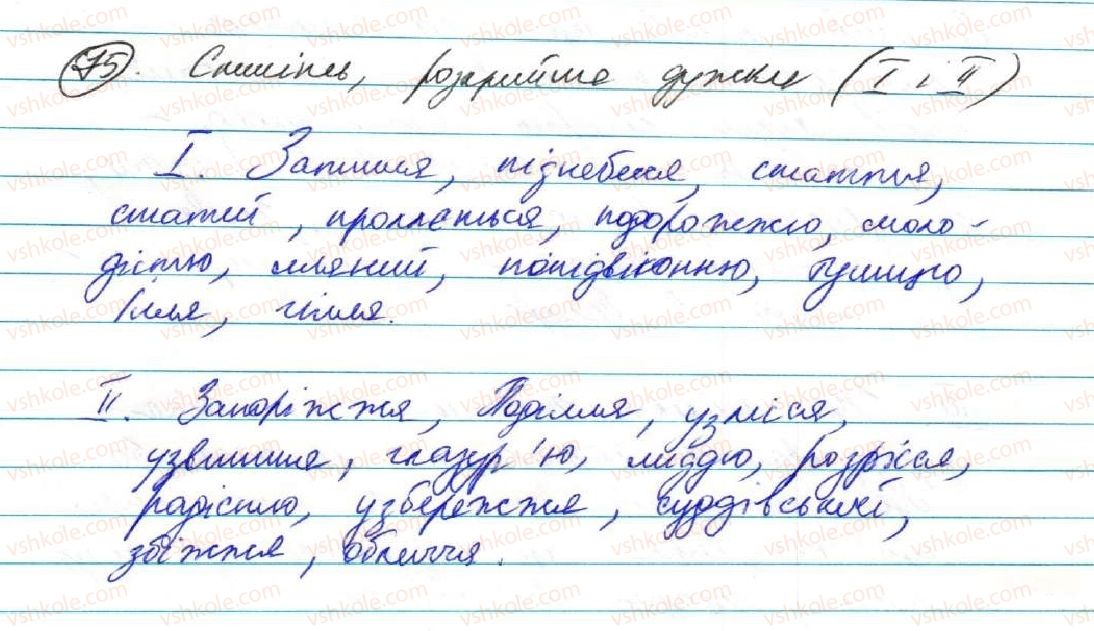 75. Спишіть, розкрийте дужки (I і II)
I. Затишшя, піднебення, стаття,
статей, проллється, подорожжю, моло-
дістю, лляний, попідвіконню,
Ілля, гілля.
II. Запоріжжя, Поділля, узлісся,
узвишшя, глазур'ю, миддю, розрісся,
радістю, узбережжя, суддівський,
збіжжя, обличчя.